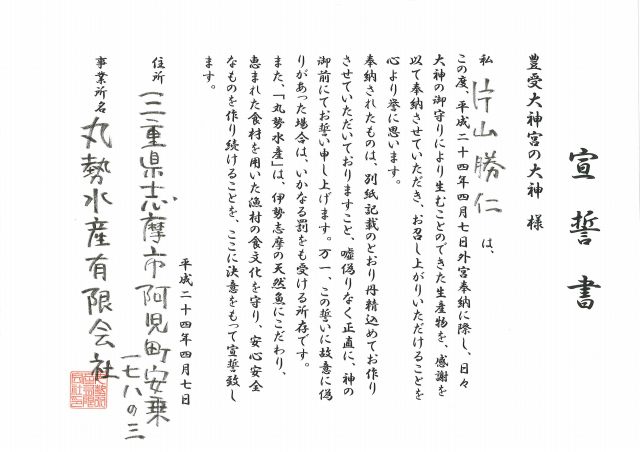 宣誓書
豊受大神宮の大神 様
私 片山勝仁 は、
この度、平成二十四年四月七日外宮奉納に際し、日々
大神の御守りにより生むことのできた生産物を、感謝を
以て奉納させていただき、お召し上がりいただけることを
心より誉に思います。
奉納されたものは、別紙記載のとおり丹精込めてお作り
させていただいておりますこと、嘘偽りなく正直に、神の
御前にてお誓い申し上げます。万一、この誓いに故意に偽
りがあった場合は、いかなる罰をも受ける所存です。
また、「丸勢水産」は、伊勢志摩の天然魚にこだわり、
恵まれた食材を用いた漁村の食文化を守り、安心安全
なものを作り続けることを、ここに決意をもって宣誓致し
ます。
平成二十四年四月七日
住所 三重県志摩市阿児町安乗
一七八の三
事業所名 丸勢水産有限会社